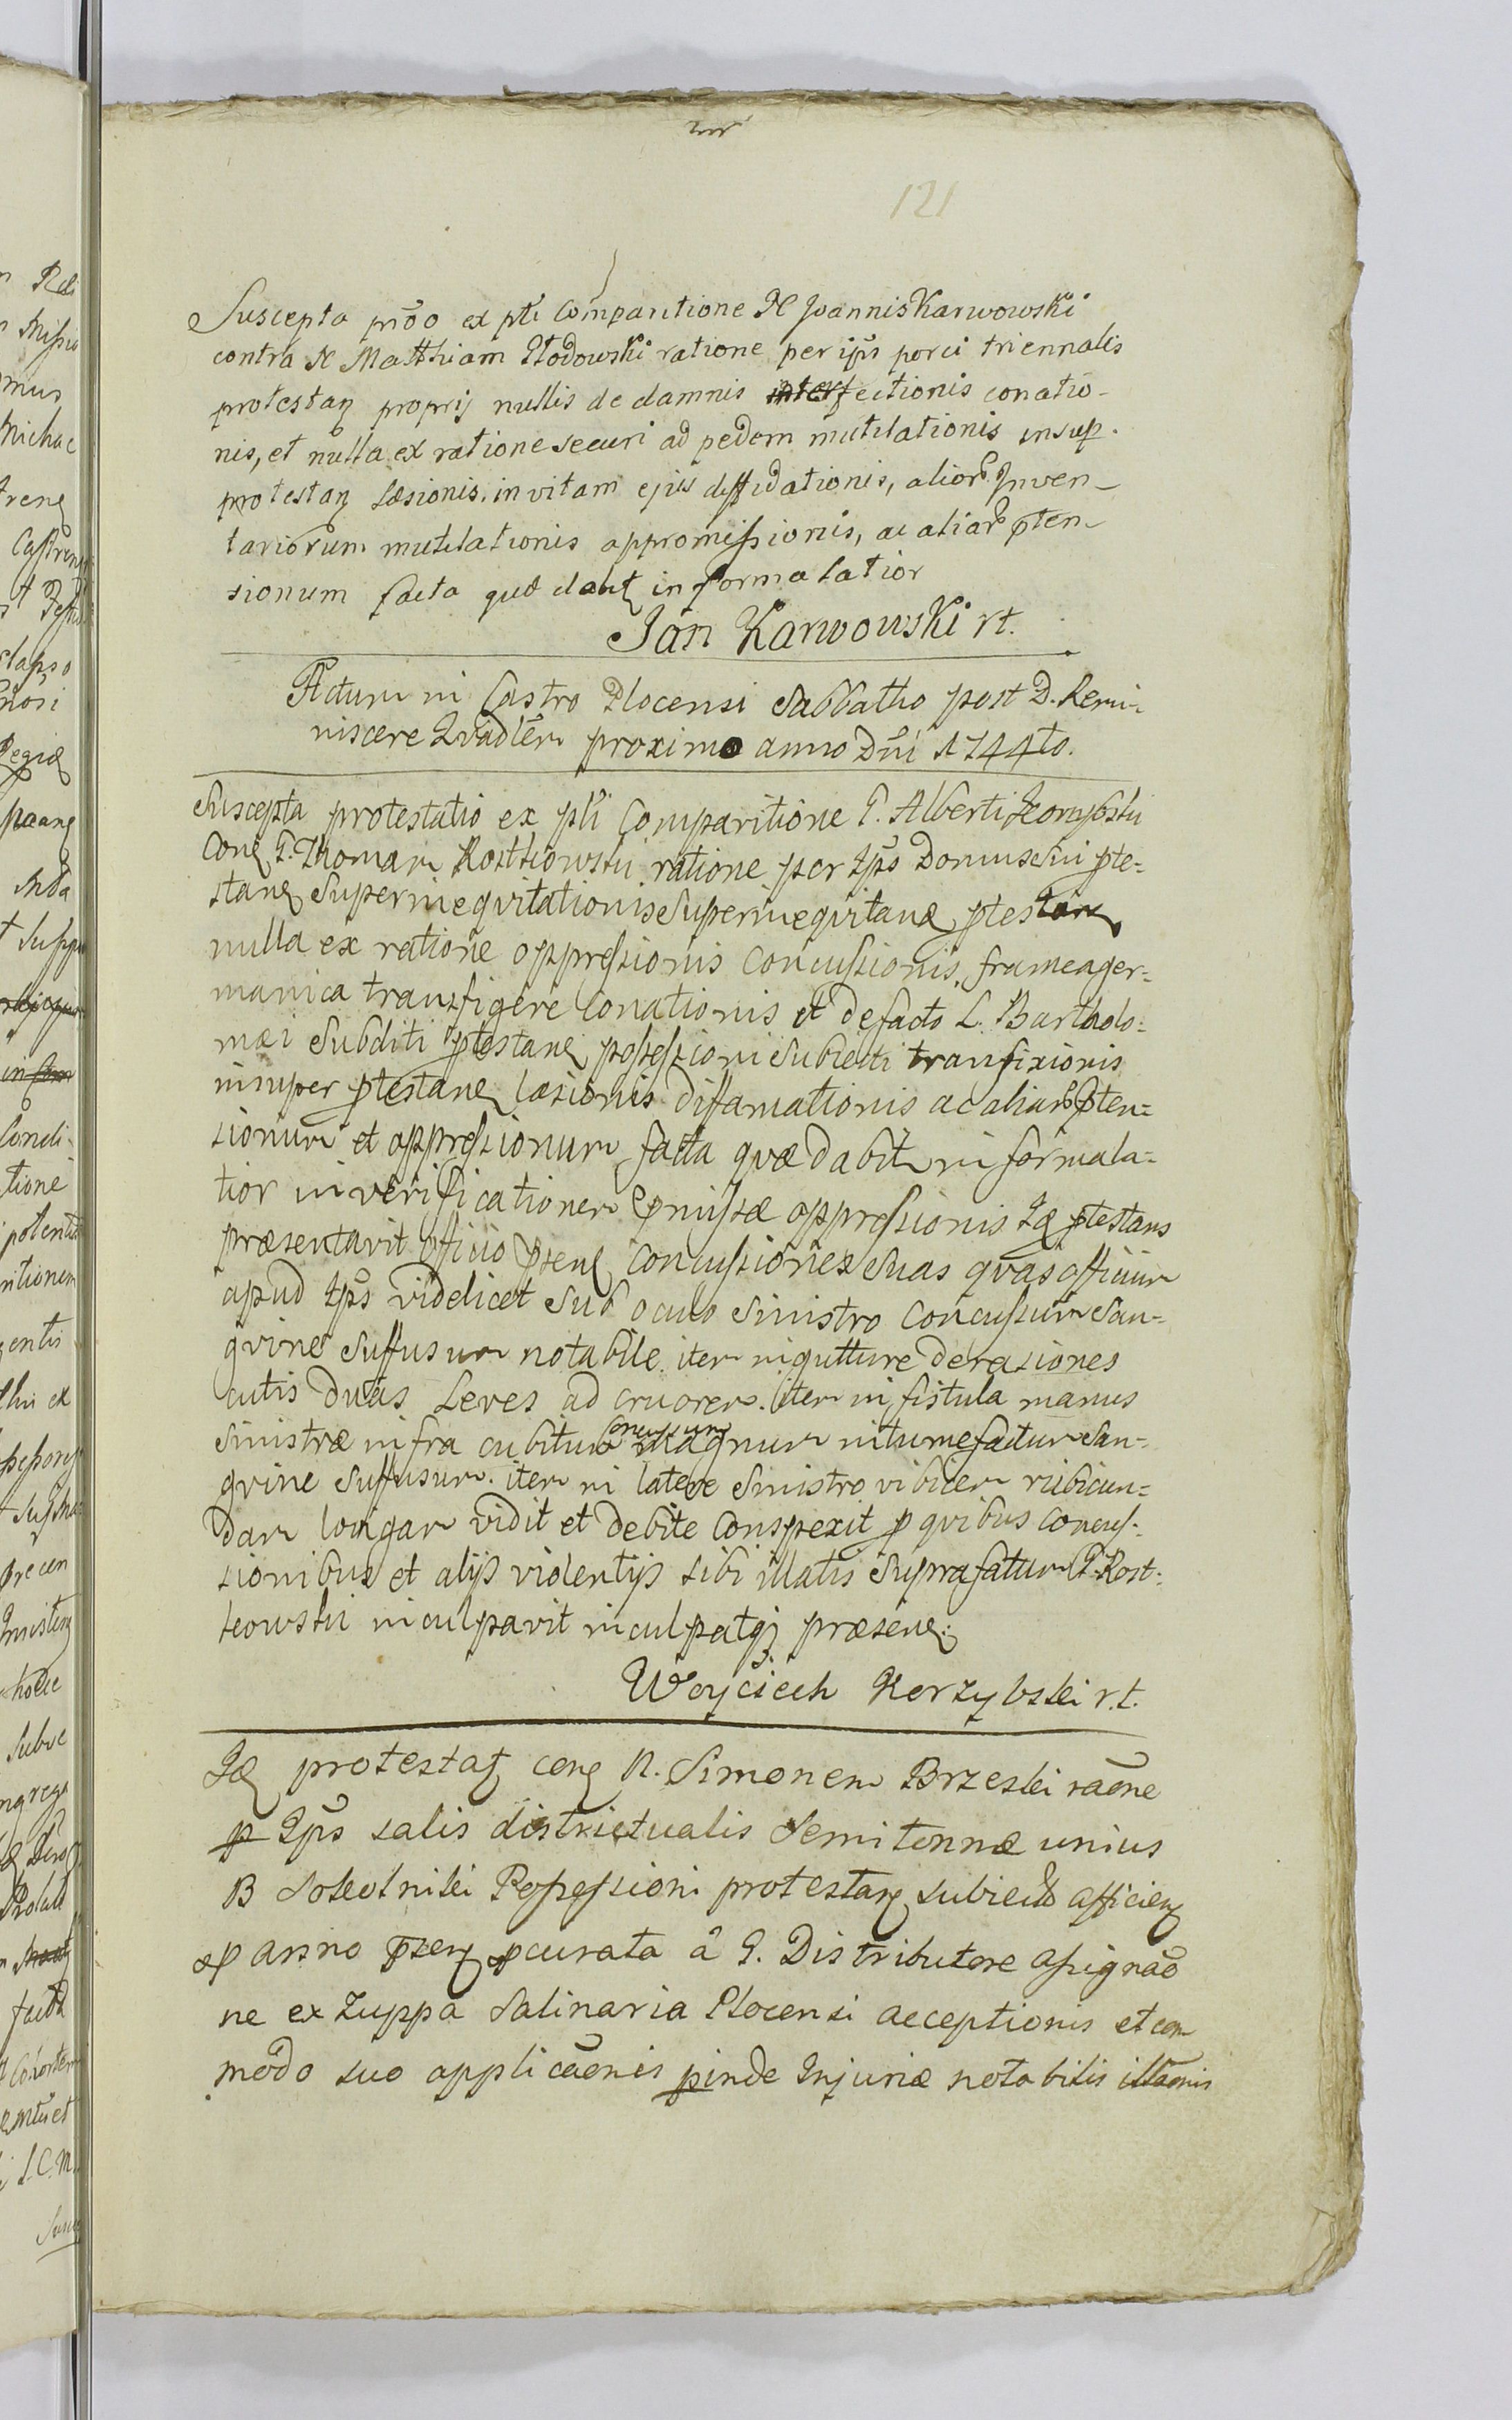 121
Suscepta prõo ex pti Comparitione N Joannis Karwowski
contra N Matthiam Płodowski ratione per ips porci triennalis
protestan proprij nullis de damnis interfectionis conatio-
nis, et nulla ex ratione securi ad pedem mutilationis insup.
protestan læsionis, in vitam ejus diffidationis, alior Inven-
tariorum mutilationis appromissionis, ac aliar pten-
sionum facta quæ dabit informa latior
Jan Karwowski rt.
Actum in Castro Plocensi Sabbatho post D. Remi-
niscere Qvadlem proximo anno Dni 1744to.
Suscepta protestatio ex pti Comparitione G. Alberti
Con G. Thomam Rostkowski ratione per Ips Domus sui pte-
stan Superineqvitationis Superineqvitanæ ptestan
nulla ex ratione oppressionis concussionis, frameager-
manica transfigere Conationis et defacto L. Bartholo-
mæi Subditi ptestane possessioni Subiecti transfixionis
insuper ptestane læsionis diffamationis ac aliar pten-
sionum et oppressionum facta qvæ dabit in forma la-
tior in verificationem pmissæ oppressionis Id ptestans
præsentavit officio psen concussiones suas qvas officium
apud Ips videlicet sub oculo Sinistro concussum san-
gvine Suffusum notabile item in gutture derasiones
cutis duas Leves ad cruorem. item in fistula manus
Sinistræ infra cubitum concussum magnum intumefactum San-
gvine Suffusum. item in latere Sinistro vibicem rubicun-
dam longam vidit et debite Conspexit p qvibus concus-
sionibus et alijs violentijs sibi illatis Suprafatum G. Rost-
kowski inculpavit inculpatq præsen
Woyciech Korzybski r.t.
Id protestat con N. Simonem Brzeski raõne
p Ips salis districtualis Semitonnæ unius
B Possessioni protestan subiecto afficien
p anno psen pcurata â G. Distributore assignaõ
ne ex Zuppa Salinaria Plocensi acceptionis et com
modo suo applicaõnis pinde Injuriæ notabilis illaõnis